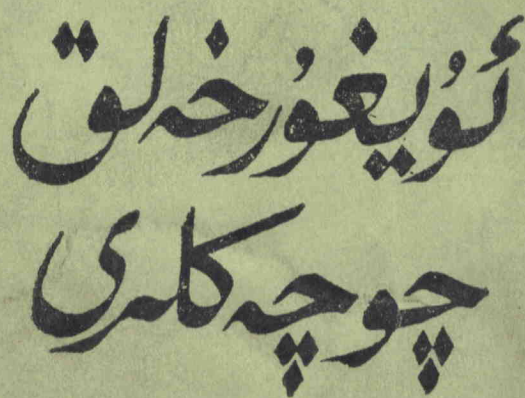 ئۇيغۇر خەلق
چوچەكلىرى